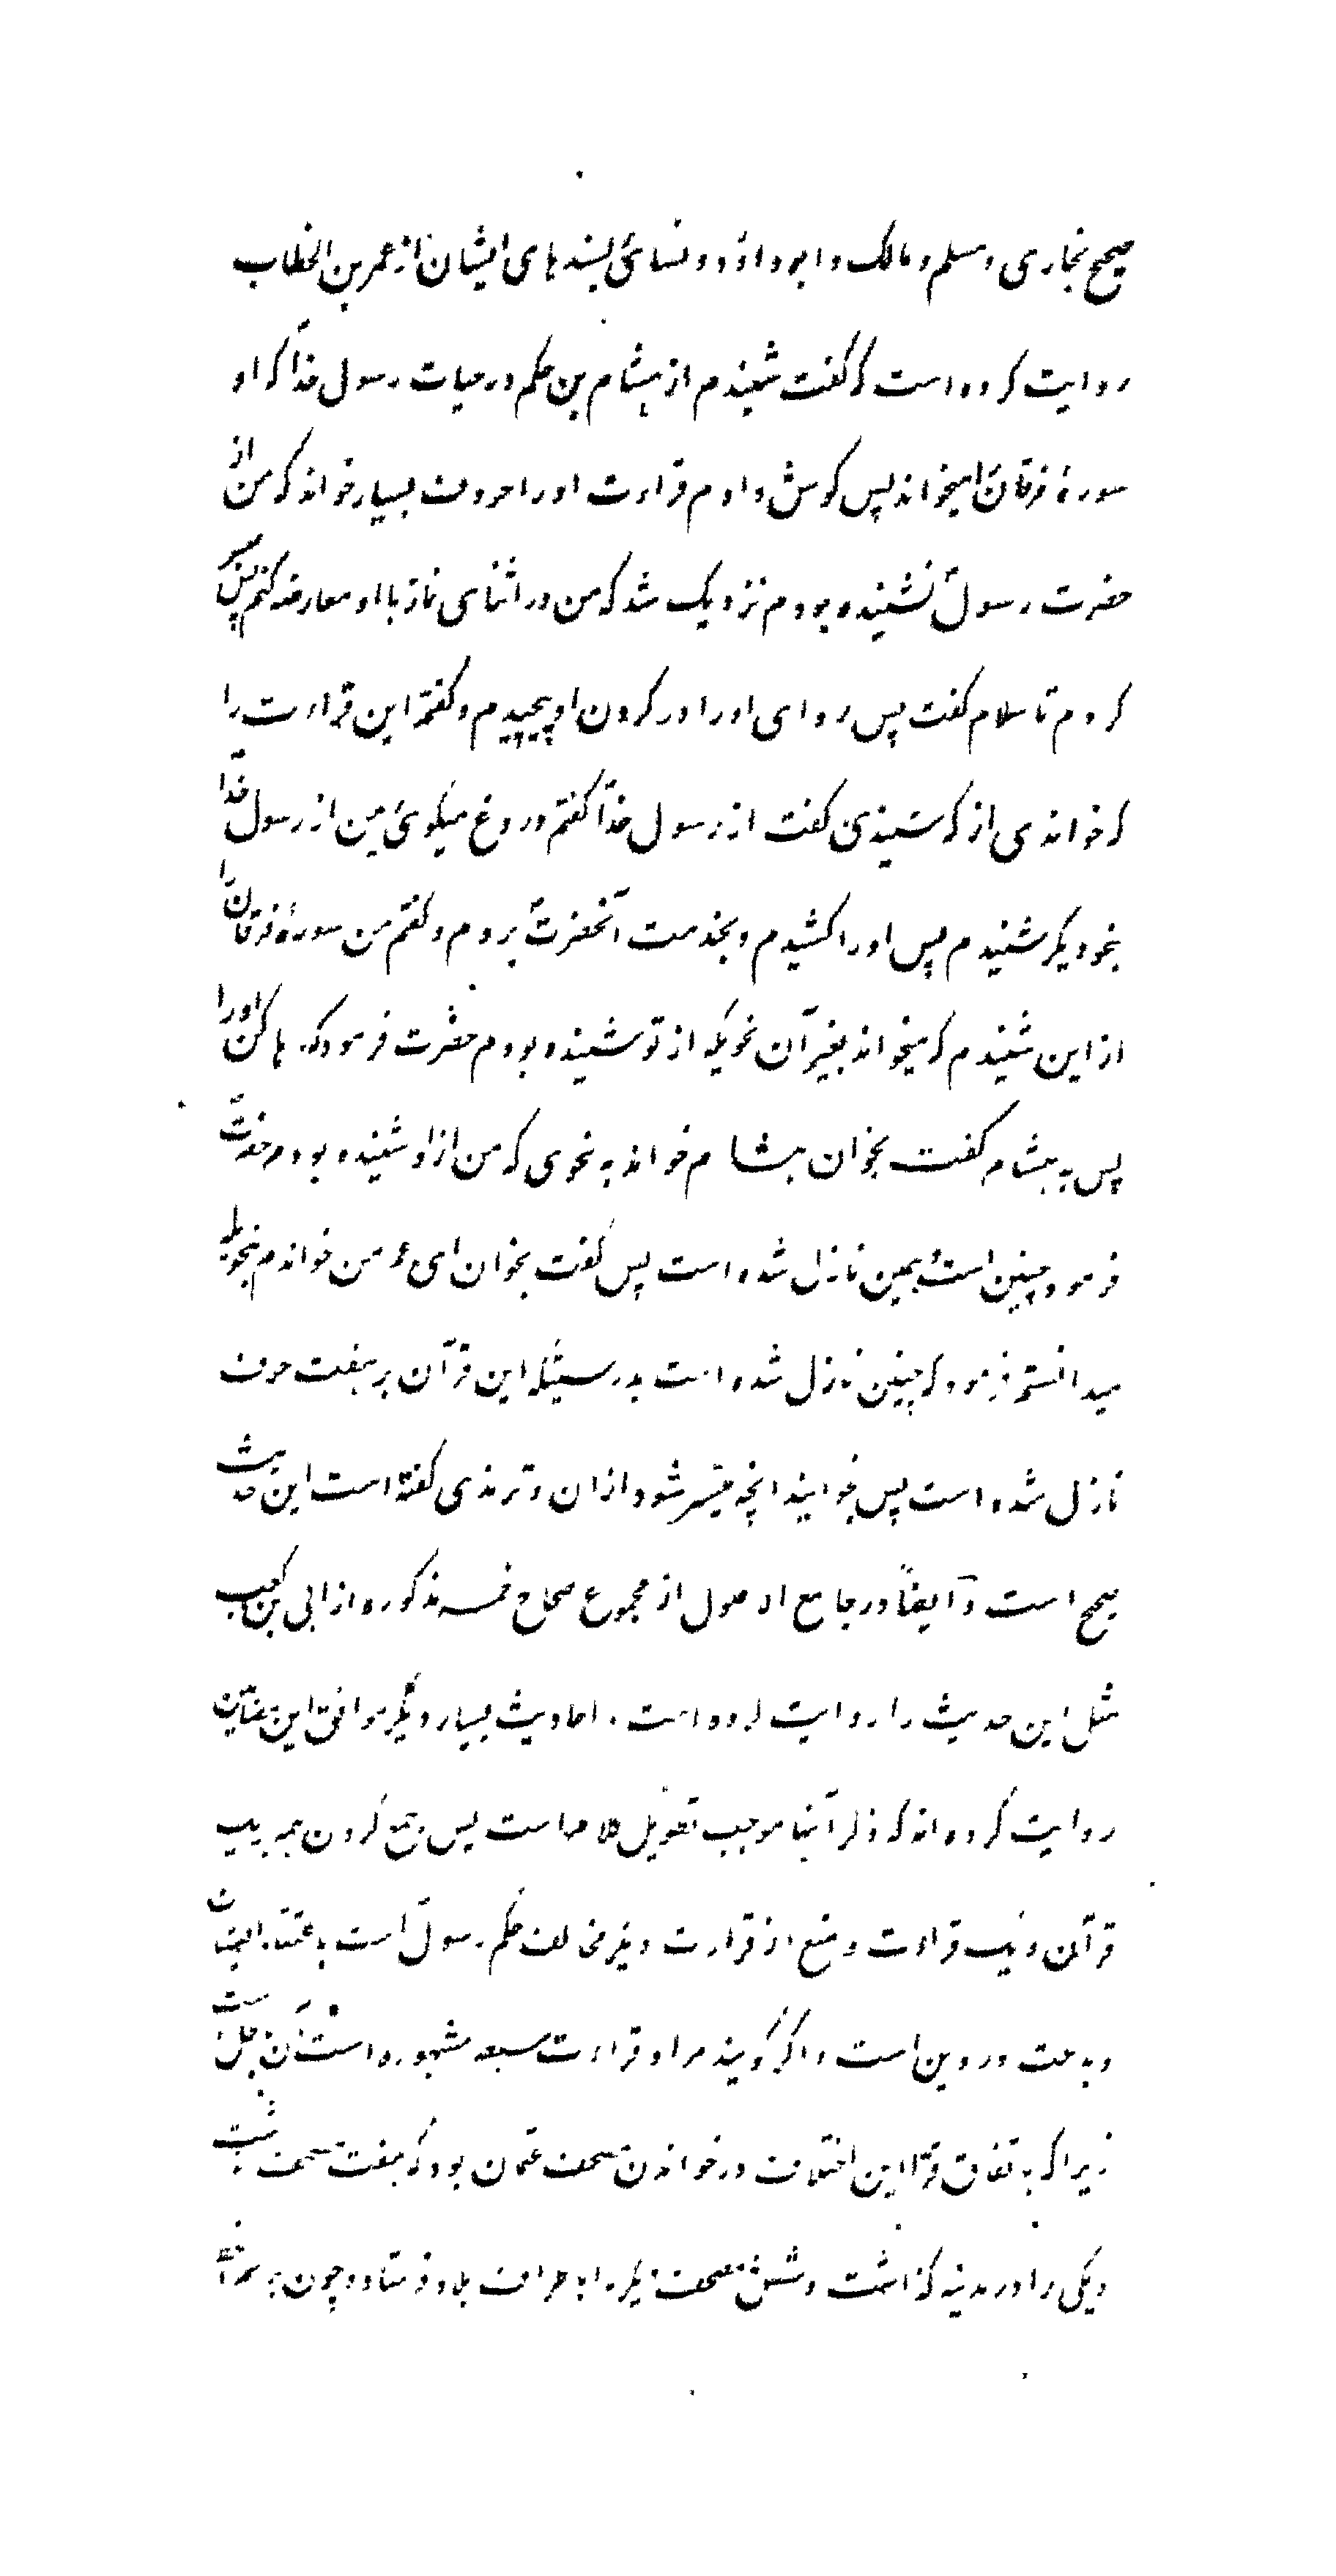 صحیح بخاری و مسلم و مالک و ابو داؤد و نسائی بسندهای ایشان از عمر بن الخطاب
روایت کرده است که گفت شنیدم از هشام بن حکم در حیات رسول خدا که او
سورهٔ فرقان میخواند پس کوش دادم قراءت او را حروف بسیار خواند که من از
حضرت رسول نشنیده بودم نزدیک شد که من در اثنای نماز با او معارضه کنم پس صبر
کردم تا سلام گفت پس ردای او را در کردن او پیچیدم و کفتم این قراءت را
که خواندی از که شنیدی کفت از رسول خدا کفتم دروغ میکوئی من از رسول خدا
بنحو دیکر شنیدم پس او را کشیدم و بخدمت آنحضرت بردم و کفتم من سورهٔ فرقان را
از این شنیدم که میخواند بغیر آن نحویکه از تو شنیده بودم حضرت فرمود که رها کن او را
پس به هشام کفت بخوان هشام خواند به نحوی که من از او شنیده بودم حضرت
فرمود چنین است و همین نازل شده است پس کفت بخوان ای عمر من خواندم بنحویکه
میدانستم فرمود که چنین نازل شده است بدرستیکه این قرآن بر هفت حرف
نازل شده است پس بخوانید انچه میسر شود ازان و ترمذی کفته است این حدیث
صحیح است و ایضاً در جامع الاصول از مجموع صحاح خمسه مذکوره از ابی بن کعب
مثل این حدیث را روایت کرده است و احادیث بسیار دیگر موافق این مضامین
روایت کرده اند که ذکر آنها موجب تطویل کلام است پس جمع کردن همه بر یک
قرآن و یک قراءت و منع از قراءت دیگر مخالف حکم رسول است باعتقاد ایشان
و بدعت در دین است و اگر گویند مراد قراءت سبعه مشهوره است آن باطل است
زیرا که به اتفاق قرا این اختلاف در خواندن مصحف عثمان بود که هفت مصحف نوشت
و یکی را در مدینه گذاشت و شش مصحف دیگر را به اطراف بلاد فرستاد و چون